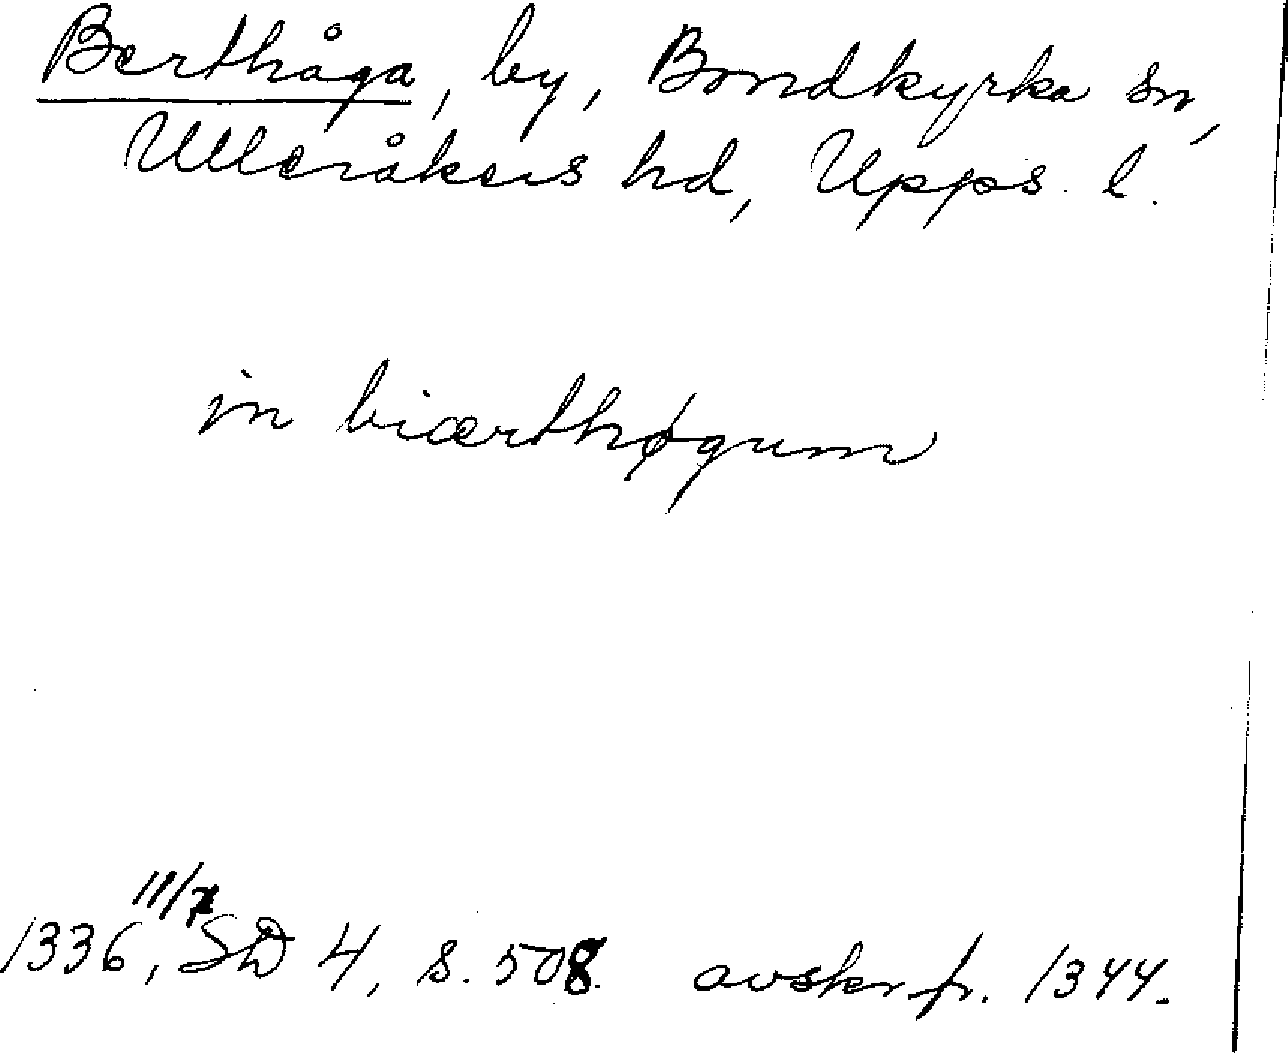 Berthåga, by, Bondkyrka sn,
Ulleråkers hd, Upps. l.
in biærthøgum
1336, SD 4, s. 508. avskr. fr. 1344.